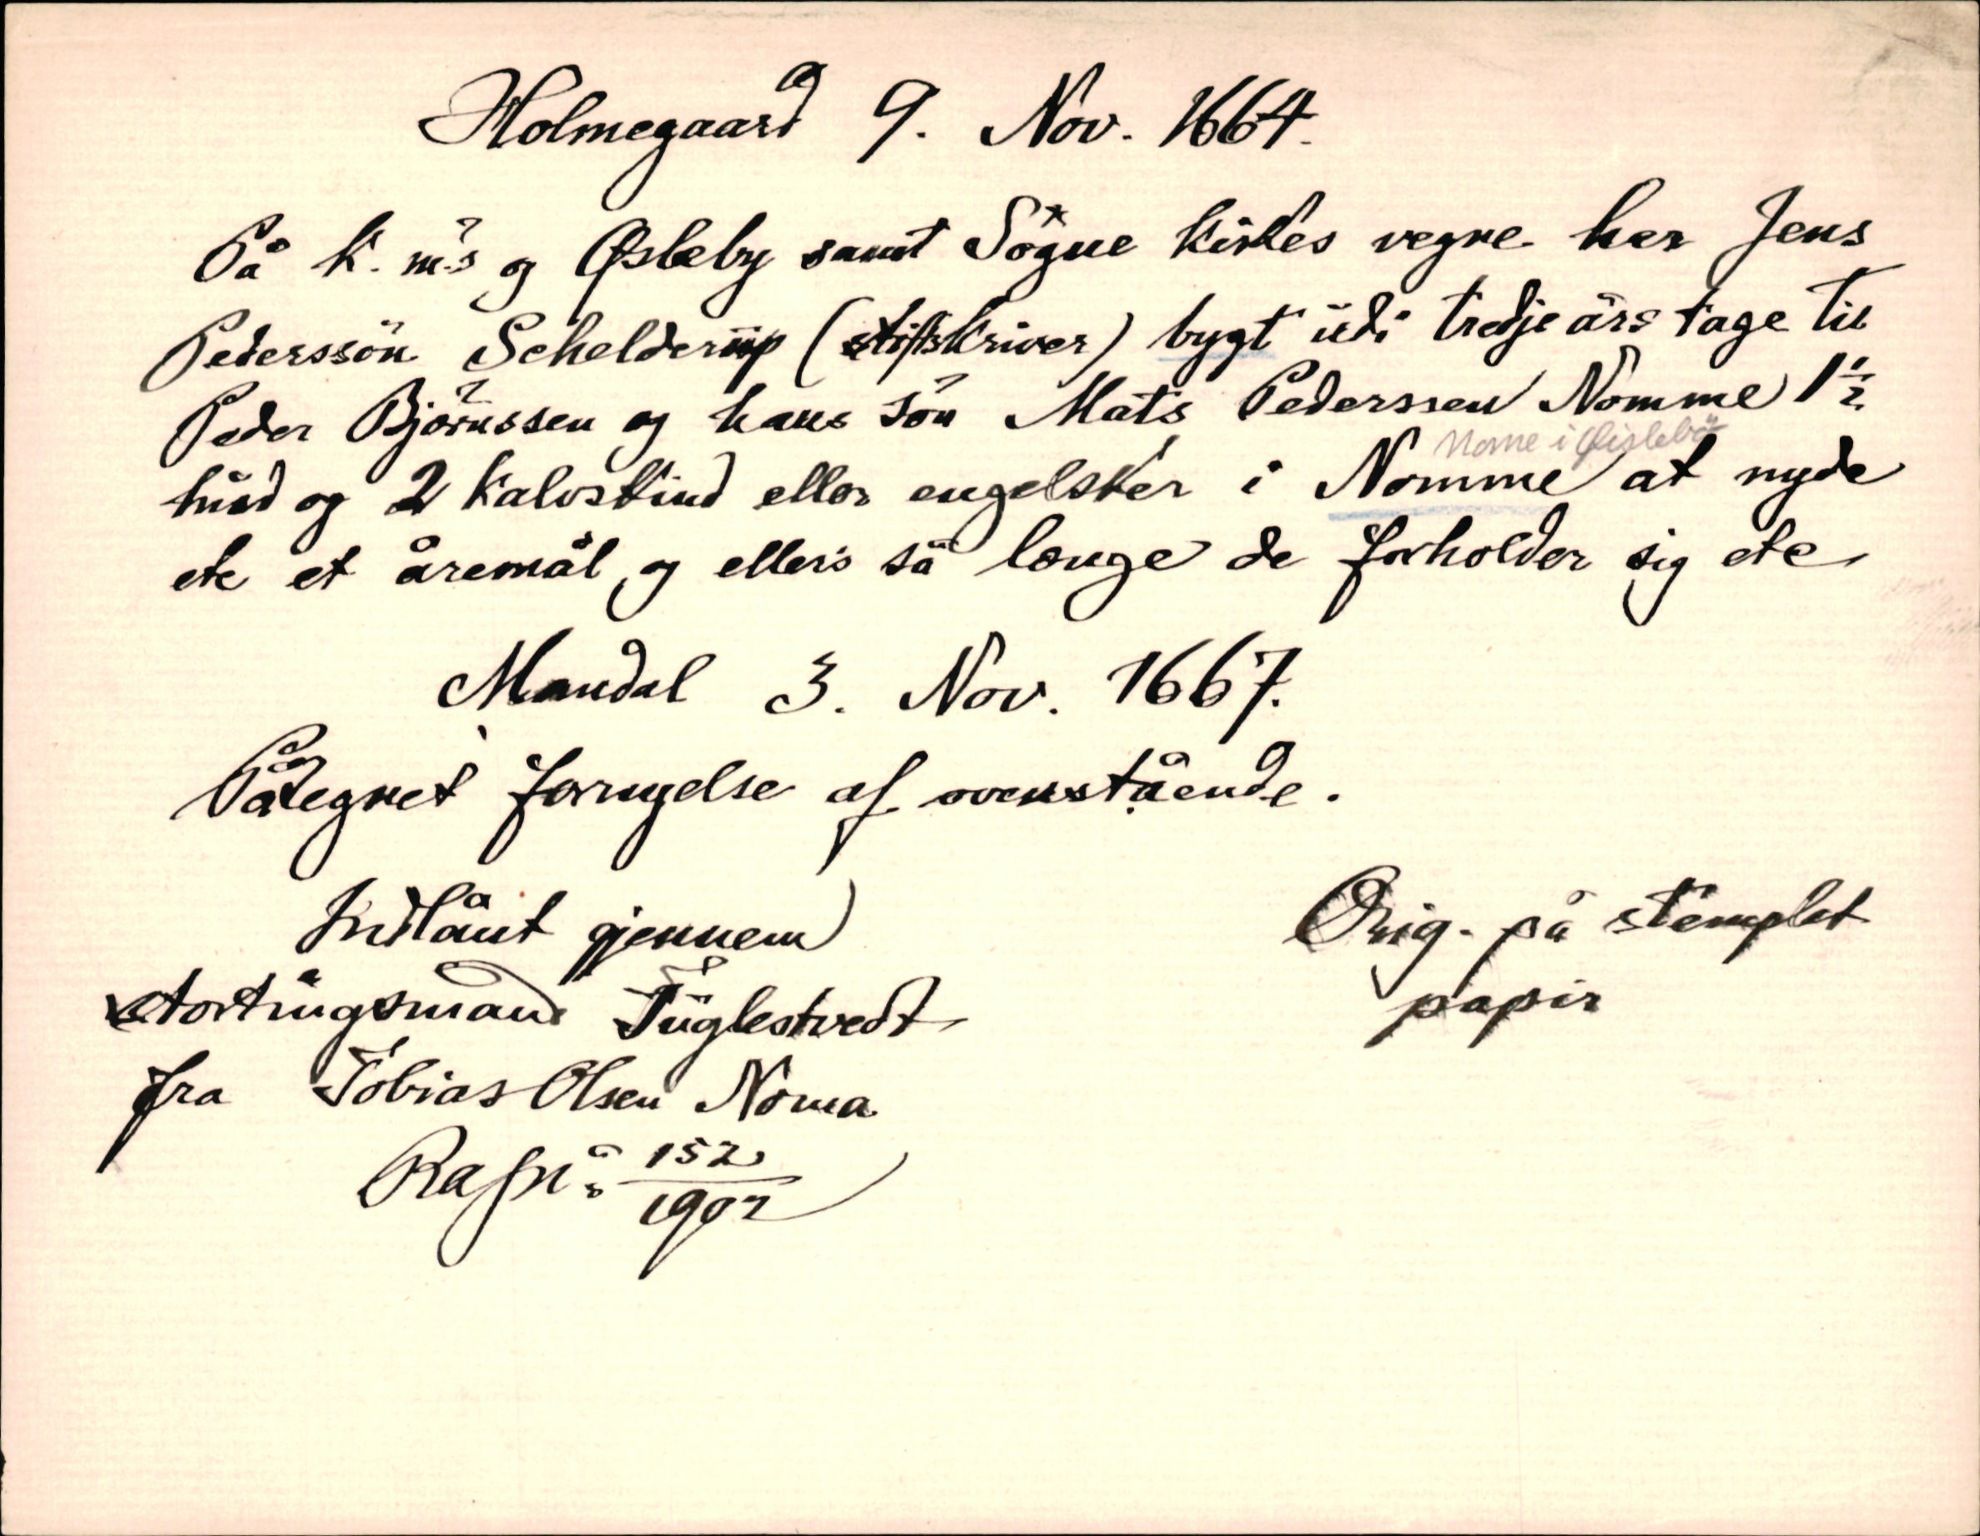 Holmegaard 9. Nov. 1664.
På k. m.s og Øsleby samt Sögne kirkes vegne har Jens
Pederssön Schelderup (stiftskriver) bygt udi tredje års tage til
Peder Björnssen og hans sön Mats Pederssen Nomme 1½
hud og 2 kalvskind eller engelsker i Nomme at nyde
Nome i Øislebö
etc et åremål og ellers så længe de forholder sig etc
Mandal 3. Nov. 1667.
Påtegnet fornyelse af ovenstående.
Indlånt gjennem
stortingsmand Fuglestvedt
fra Tobias Olsen Noma
Ra jn: 152/1902
Orig. på stemplet
papir